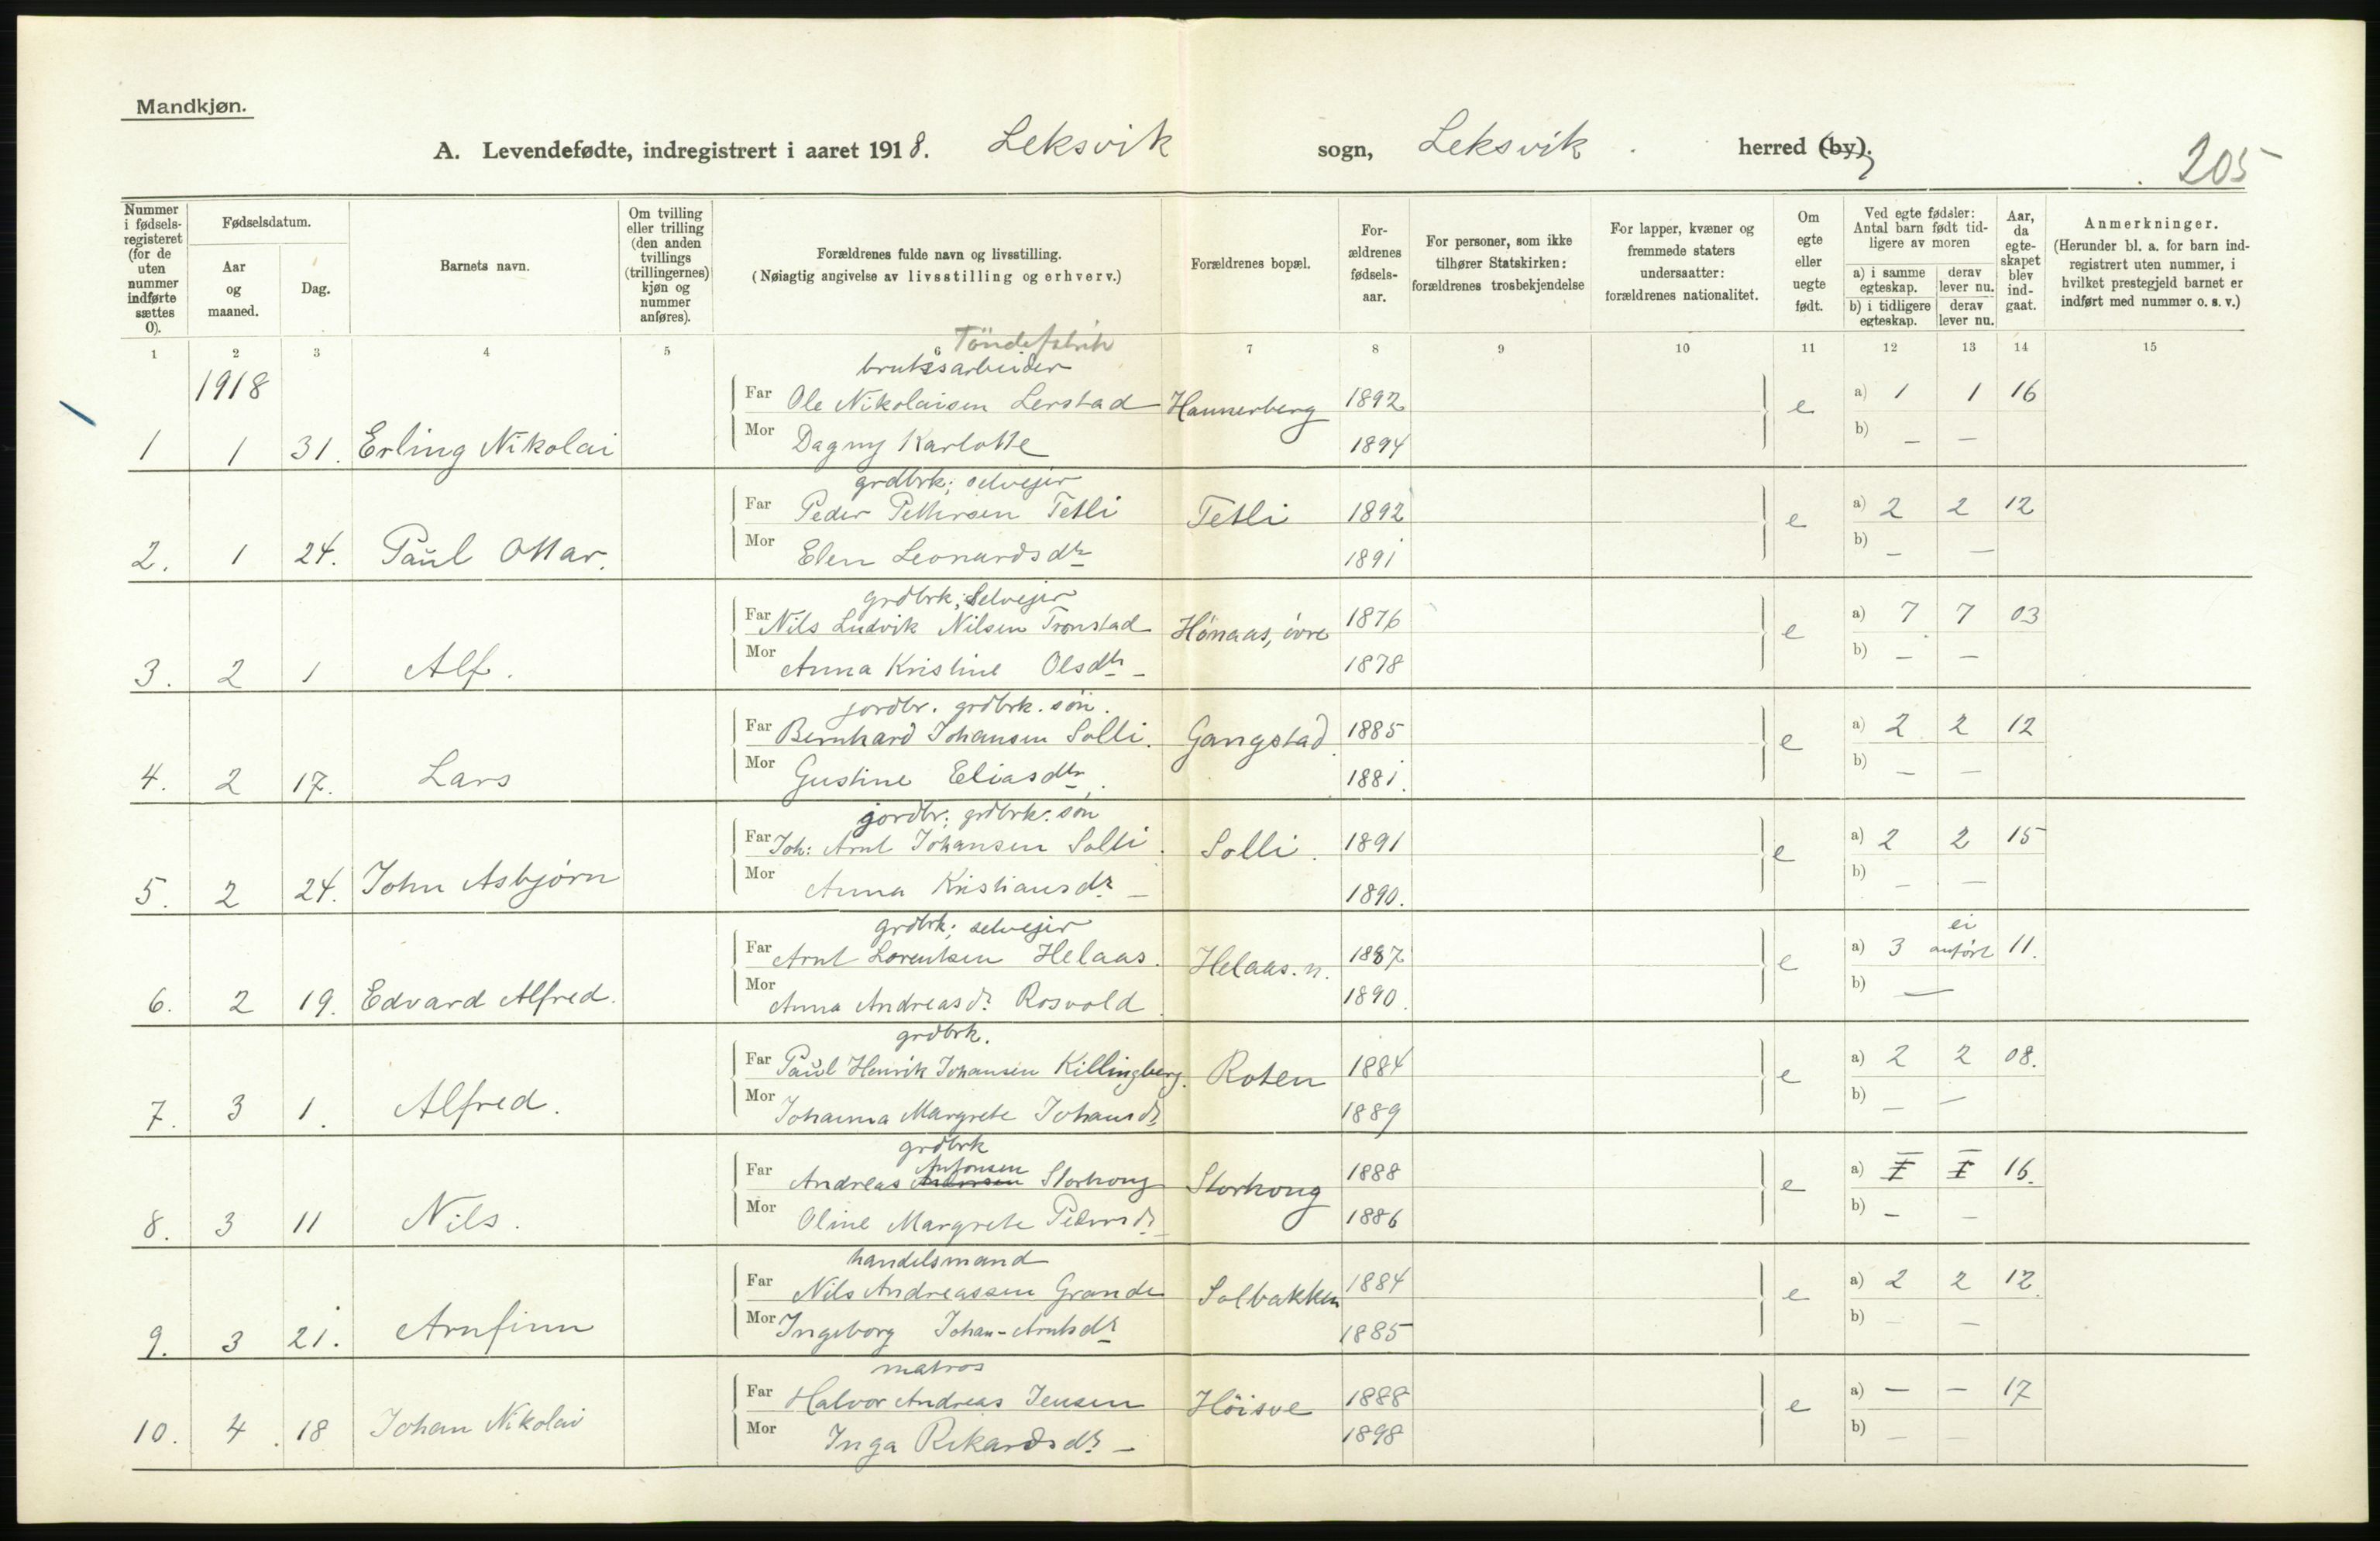 Mandkjøn.
A. Levendefødte, indregistrert i aaret 1918. Leksvik sogn, Leksvik herred (by).
205
Nummer i fødsels-registeret (for de uten nummer indførte sættes 0).
Fødselsdatum.
Aar og maaned.
Dag.
Barnets navn.
Om tvilling eller trilling (den anden tvillings (trillingernes) kjøn og nummer anføres).
Forældrenes fulde navn og livsstilling.
(Nøiagtig angivelse av livsstilling og erhverv.)
Forældrenes bopæl.
For-ældrenes fødsels-aar.
For personer, som ikke tilhører Statskirken: forældrenes trosbekjendelse
For lapper, kvæner og fremmede staters undersaatter: forældrenes nationalitet.
Om egte eller uegte født.
Ved egte fødsler: Antal barn født tid-ligere av moren
a) i samme egteskap. derav lever nu.
b) i tidligere egteskap. derav lever nu.
Aar, da egte-skapet blev ind-gaat.
Anmerkninger.
(Herunder bl. a. for barn ind-registrert uten nummer, i hvilket prestegjeld barnet er indført med nummer o. s. v.)
1 2 3 4 5 6 7 8 9 10 11 12 13 14 15
1918
Töndefabrik
bruksarbeider
Far Ole Nikolaisen Lerstad Hammerberg 1892 e a) 1 1 16
1 1 31. Erling Nikolai Mor Dagny Karlotte 1894 b) — —
grdbrk; selvejer
Far Peder Pettersen Tetli Tetli 1892 e a) 2 2 12
2. 1 24. Paul Ottar. Mor Elen Leonardsdtr 1891 b) — —
grdbrk; Selvejer
Far Nils Ludvik Nilsen Tronstad Hönaas, övre 1876 e a) 7 7 03
3. 2 1 Alf. Mor Anna Kristine Olsdtr — 1878 b) — —
jordbr. grdbrk. sön.
Far Bernhard Johansen Solli. Gangstad 1885 e a) 2 2 12
4. 2 17. Lars Mor Gustine Eliasdtr. 1881. b) — —
jordbr; grdbrk. sön
Far Joh: Arnt Johansen Solli. Solli. 1891 e a) 2 2 15
5. 2 24. John Asbjørn Mor Anna Kristiansdr — 1890. b) — —
grdbrk; selvejer
Far Arnt Lorentsen Helaas. Helaas. n. 1887 e a) 3 ei anført 11.
6. 2 19. Edvard Alfred. Mor Anna Andreasdr Rosvold 1890. b) —
grdbrk.
Far Paul Henrik Johansen Killingberg. Roten 1884 e a) 2 2 08.
7. 3 1. Alfred. Mor Johanna Margrete Johansdr 1889 b) — —
grdbrk
Antonsen
Far Andreas Storhong Storhong 1888 e a) I I 16.
8. 3 11 Nils. Mor Oline Margrete Pedersdr — 1886 b) — —
handelsmand
Far Nils Andreassen Grande Solbakken 1884 e a) 2 2 12.
9. 3 21. Arnfinn Mor Ingeborg Johan-Arntsdr 1885 b) — —
matros
Far Halvor Andreas Jensen Höisve 1888 e a) — — 17
10. 4 18 Johan Nikolai Mor Inga Rikardsdr — 1898 b) — —